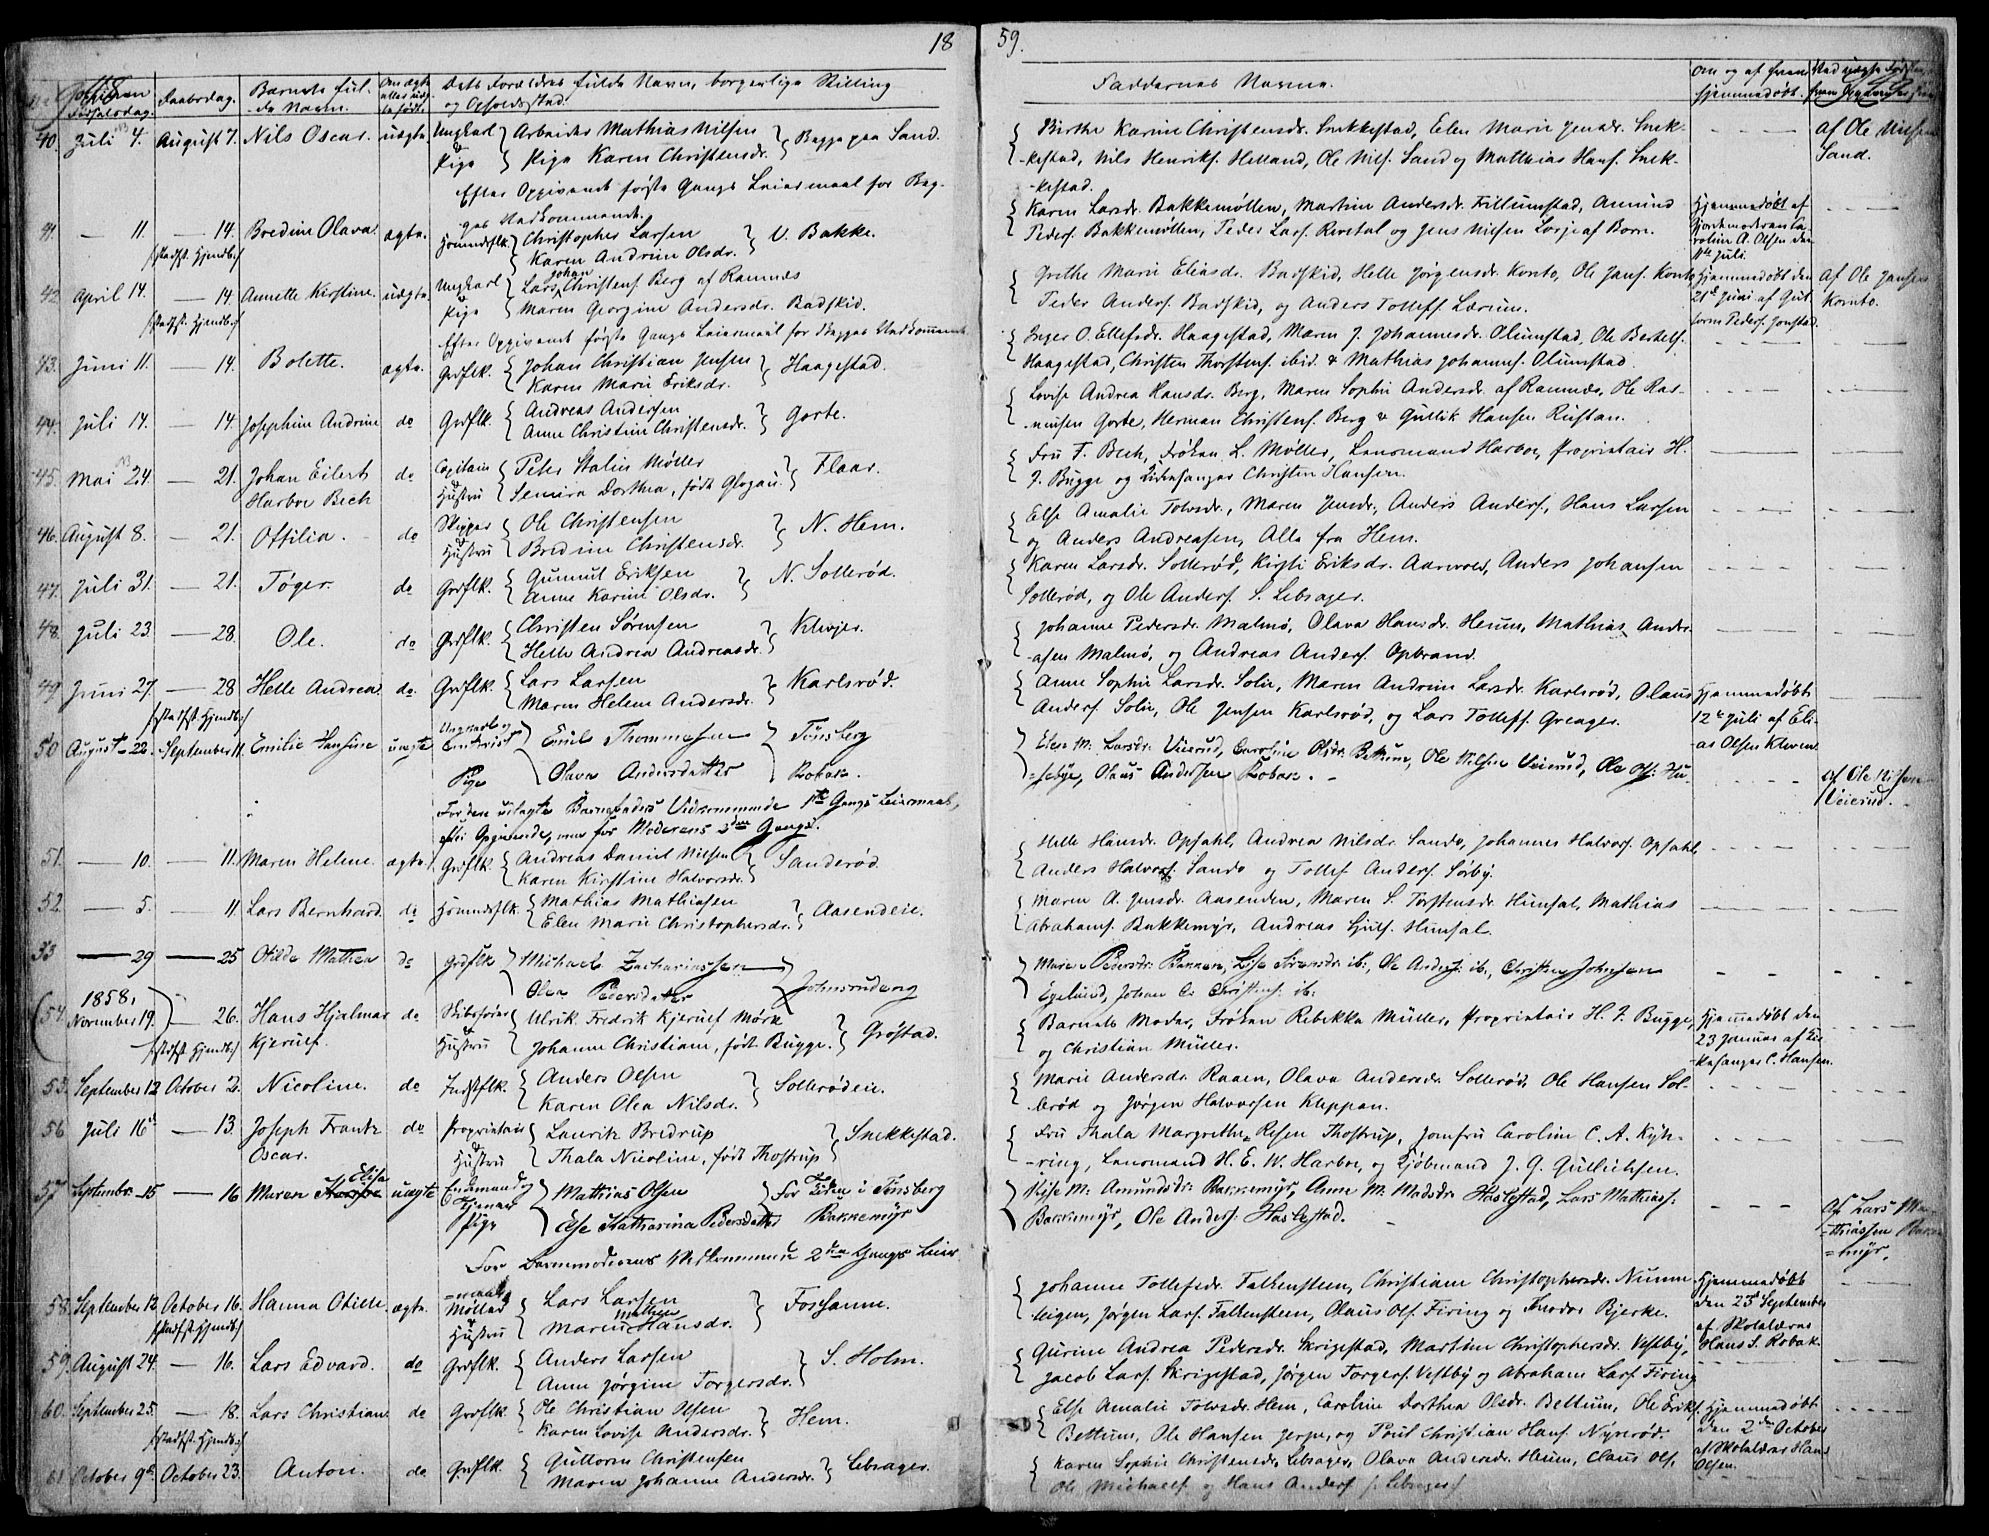 18 59.
Daabsdag. Barnets ful-
de Navn. Om ægte
eller uæg-
te født. Dets Forældres fulde Navn, borgerlige Stilling
og Opholdssted. Faddernes Navne. Om og af hvem
hjemmedøbt.
40. Juli 4. August 7. Nils Oscar. uægte. Ungkarl & Pige { Arbeider Mathias Nilsen
Pige Karen Christensdr. } Begge paa Sand.
Efter Opgivende første Gangs Leiermaal for Beg-
ges Vedkommende.
Birthe Karine Christensdr. Snekkestad, Elen Marie Jensdr. Snek-
kestad, Nils Henriks. Helland, Ole Nils. Sand og Matthias Hans. Snek-
kestad.
af Ole Nilsen
Sand.
41. — 11. — 14. Bredine Olava. ægte. Huusmdsflk. { Christopher Larsen
Karen Andrine Olsdr. } V. Bakke.
/:Stadfst. Hjemdb:/
Karen Larsdr. Bakkemøllen, Martine Andersdr. Fillumstad, Amund
Peders. Bakkemøllen, Peder Lars. Revetal og Jens Nilsen Lorje af Borre.
Hjemmedøbt af
Gjordemoderen Ca-
roline A. Olsen den
11te Juli.
42. April 14. — 14. Annette Kirstine. uægte. Ungkarl & Pige { Lars Johan Christens. Berg af Ramnes
Maren Georgine Andersdr. Badskid.
/:Stadfst. Hjemdb:/
Efter Opgivende første Gangs Leiermaal for Begges Vedkommende.
Grethe Marie Eliasdr. Badskid, Helle Jørgensdr. Kornto, Ole Jans. Kornto,
Peder Anders. Badskid, og Anders Tollefs. Lærum.
Hjemmedøbt den
21de Juni af Gut-
torm Peders. Jonstad.
af Ole Jansen
Kornto.
43. Juni 11. — 14. Bolette. ægte. Grdflk. { Johan Christian Jensen
Karen Marie Eriksdr. } Haagestad.
Inger O. Ellefsdr. Haagestad, Maren J. Johannesdr. Olumstad, Ole Bertels.
Haagestad, Christen Thorstens. ibid. & Mathias Johanns. Olumstad.
44. Juli 14. — 14. Josephine Andrine do Grdflk. { Andreas Andersen
Anne Christine Christensdr. } Gorte.
Lovise Andrea Hansdr. Berg, Maren Sophie Andersdr. af Ramnes, Ole Ras-
mussen Gorte, Herman Christens. Berg & Gullik Hansen Rustan.
45. Mai 24. — 21. Johan Eilert
Harboe Bech do Capitain & Hustru { Peter Stalin Møller
Semira Dorthea, født Glogau. } Flaar.
Fru F. Bech, Frøken L. Møller, Lensmand Harboe, Proprietair H.
J. Bugge og Kirkesanger Christen Hansen.
46. August 8. — 21. Ottilia. do Skipper & Hustru { Ole Christensen
Bredine Christensdr. } N. Hem.
Else Amalie Tolvsdr., Maren Jensdr., Anders Anders., Hans Larsen
og Anders Andreasen, Alle fra Hem.
47. Juli 31. — 21. Tøger. do Grdflk. { Gunnul Eriksen
Anne Karine Olsdr. } N. Sollerød.
Karen Larsdr. Sollerød, Kirsti Eriksdr. Aarevold, Anders Johansen
Sollerød, og Ole Anders. S. Lebsager.
48. Juli 23. — 28. Ole. do Grdflk. { Christen Sørensen
Helle Andrea Andreasdr. } Klevjer.
Johanne Pedersdr. Malmø, Olava Hansdr. Heum, Mathias Andre-
asen Malmø, og Andreas Anders. Opbrand.
49. Juni 27. — 28. Helle Andrea. do. Grdflk. { Lars Larsen
Maren Helene Andersdr. } Karlsrød.
/:Stadfst. Hjemdb:/
Anne Sophie Larsdr. Solie, Maren Andrine Larsdr. Karlsrød, Olaus
Anders. Solie, Ole Jensen Karlsrød, og Lars Tollefs. Greager.
Hjemmedøbt
12te Juli af Eli-
as Olsen Kleven.
50 August 22. September 11. Emilie Hansine uægte Ungkarl og
Pige { Emil Thommesen
Olava Andersdatter } Tønsberg
Robak.
For den udlagte Barnefaders Vedkommende 1ste Gangs Leiermaal,
efter Opgivende, men for Moderens 2den Gangs.
Elen M: Larsdr. Veierud, Caroline Olsdr. Bettum, Ole Nilsen Veierud, Ole Ols: Hu-
seby, Olaus Andersen Robak. –
af Ole Nilsen
Veierud.
51. — 10. — 11. Maren Helene. ægte. Grdflk. { Andreas Daniel Nilsen
Karen Kirstine Halvorsdr. } Sanderød.
Helle Hansdr. Opsahl, Andrea Nilsdr. Sande, Johannes Halvors. Opsahl,
Anders Halvors. Sande og Tollef Anders. Sørby.
52. — 5. — 11. Lars Bernhard. do Huusmdsflk. { Mathias Mathiasen
Elen Marie Christophersdr. } Aasendeie.
Maren A. Jensdr. Aasenden, Maren S. Torstensdr. Huusal, Mathias
Abrahams. Bakkemyr, Andreas Huusal.
53 — 29 — 25 Otilde Mathea do Grdflk { Michael Zachariassen
Olea Pedersdatter } Johnsrudeng
Maren Pedersdr: Bakken, Lise Sørensdr: ib:, Ole Anders: ib., Christen Johnsen
Egelund, Johan C. Christens: ib:
54. 1858.
November 19. — 26. Hans Hjalmar
Kjerulf. do Skibsfører & Hustru { Ulrik Fredrik Kjerulf Mørk
Johanne Christiane, født Bugge. } Grøstad.
/:Stdfst. Hjemdb:/
Barnets Moder, Frøken Rebekka Müller, Proprietair H. J. Bugge,
og Christian Müller.
Hjemmedøbt den
23 Januar af Kir-
kesanger C. Hansen.
55. September 12 October 2. Nicoline. do Indstflk. { Anders Olsen
Karen Olea Nilsdr. } Sollerødeie.
Marie Andersdr. Raaen, Olava Andersdr. Sollerød, Ole Hansen Sol-
lerød og Jørgen Halvorsen Kleppan.
56 Juli 16de — 13. Joseph Frantz
Oscar. do Proprietair & Hustru { Lauritz Bredrup
Thala Nicoline, født Thostrup } Snekkestad.
Fru Thala Margrethe Resen Thostrup, Jomfru Caroline C. A. Kyh-
ring, Lensmand H. E. W. Harboe, og Kjøbmand J. G. Gullichsen.
57 Septembr. 15 — 16 Maren Elise uægte Enkemand og
Tjener
Pige { Mathias Olsen
Else Katharina Pedersdatter } For Tiden i Tønsberg
Bakkemyr
For Barnemoderens Vedkommende 2den Gangs Leier-
maal.
Kise M: Amundsdr: Bakkemyr, Anne M: Madsdr: Haslestad, Lars Mathias:
Bakkemyr, Ole Anders: Haslestad. –
Af Lars Ma-
thiassen Bakke-
myr.
58. September 12. October 16. Hanna Otilie. ægte. Møller & Hustru { Lars Larsen
Maren Mathea Hansdr. } Fossanne.
/:Stadfst. Hjemdb:/
Johanne Tollefsdr. Falkensteen, Christiane Christophersdr. Numme-
teigen, Jørgen Lars. Falkensteen, Olaus Ols. Firing og Theodor Bjerke.
Hjemmedøbt
den 23de September
af Skolelærer
Hans S. Robak.
59. August 24. — 16. Lars Edvard. do Grdflk. { Anders Larsen
Anne Jørgine Torgersdr. } S. Holm.
Gurine Andrea Pedersdr. Skrigestad, Martine Christophersdr. Vestby,
Jacob Lars. Skrigestad, Jørgen Torgers. Vestby og Abraham Lars. Firing
60. September 25. — 18. Lars Christian do Grdflk. { Ole Christian Olsen
Karen Lovise Andersdr. } Hem.
/:Stadfst. Hjemdb:/
Else Amalie Tolvsdr. Hem, Caroline Dorthea Olsdr. Bettum, Ole Eriks.
Bettum, Ole Hansen Jerpe, og Poul Christian Hans. Nyrerød.
Hjemmedøbt
den 2den October
af Skolelærer Hans
Olsen.
61 October 9de October 23. Anton. do Grdflk. { Guttorm Christensen
Maren Johanne Andersdr. } Lebsager.
Karen Sophie Christensdr. Lebsager, Olava Andersdr. Heum, Claus Ols.
Ole Michaels. og Hans Anders. /: Lebsager:/